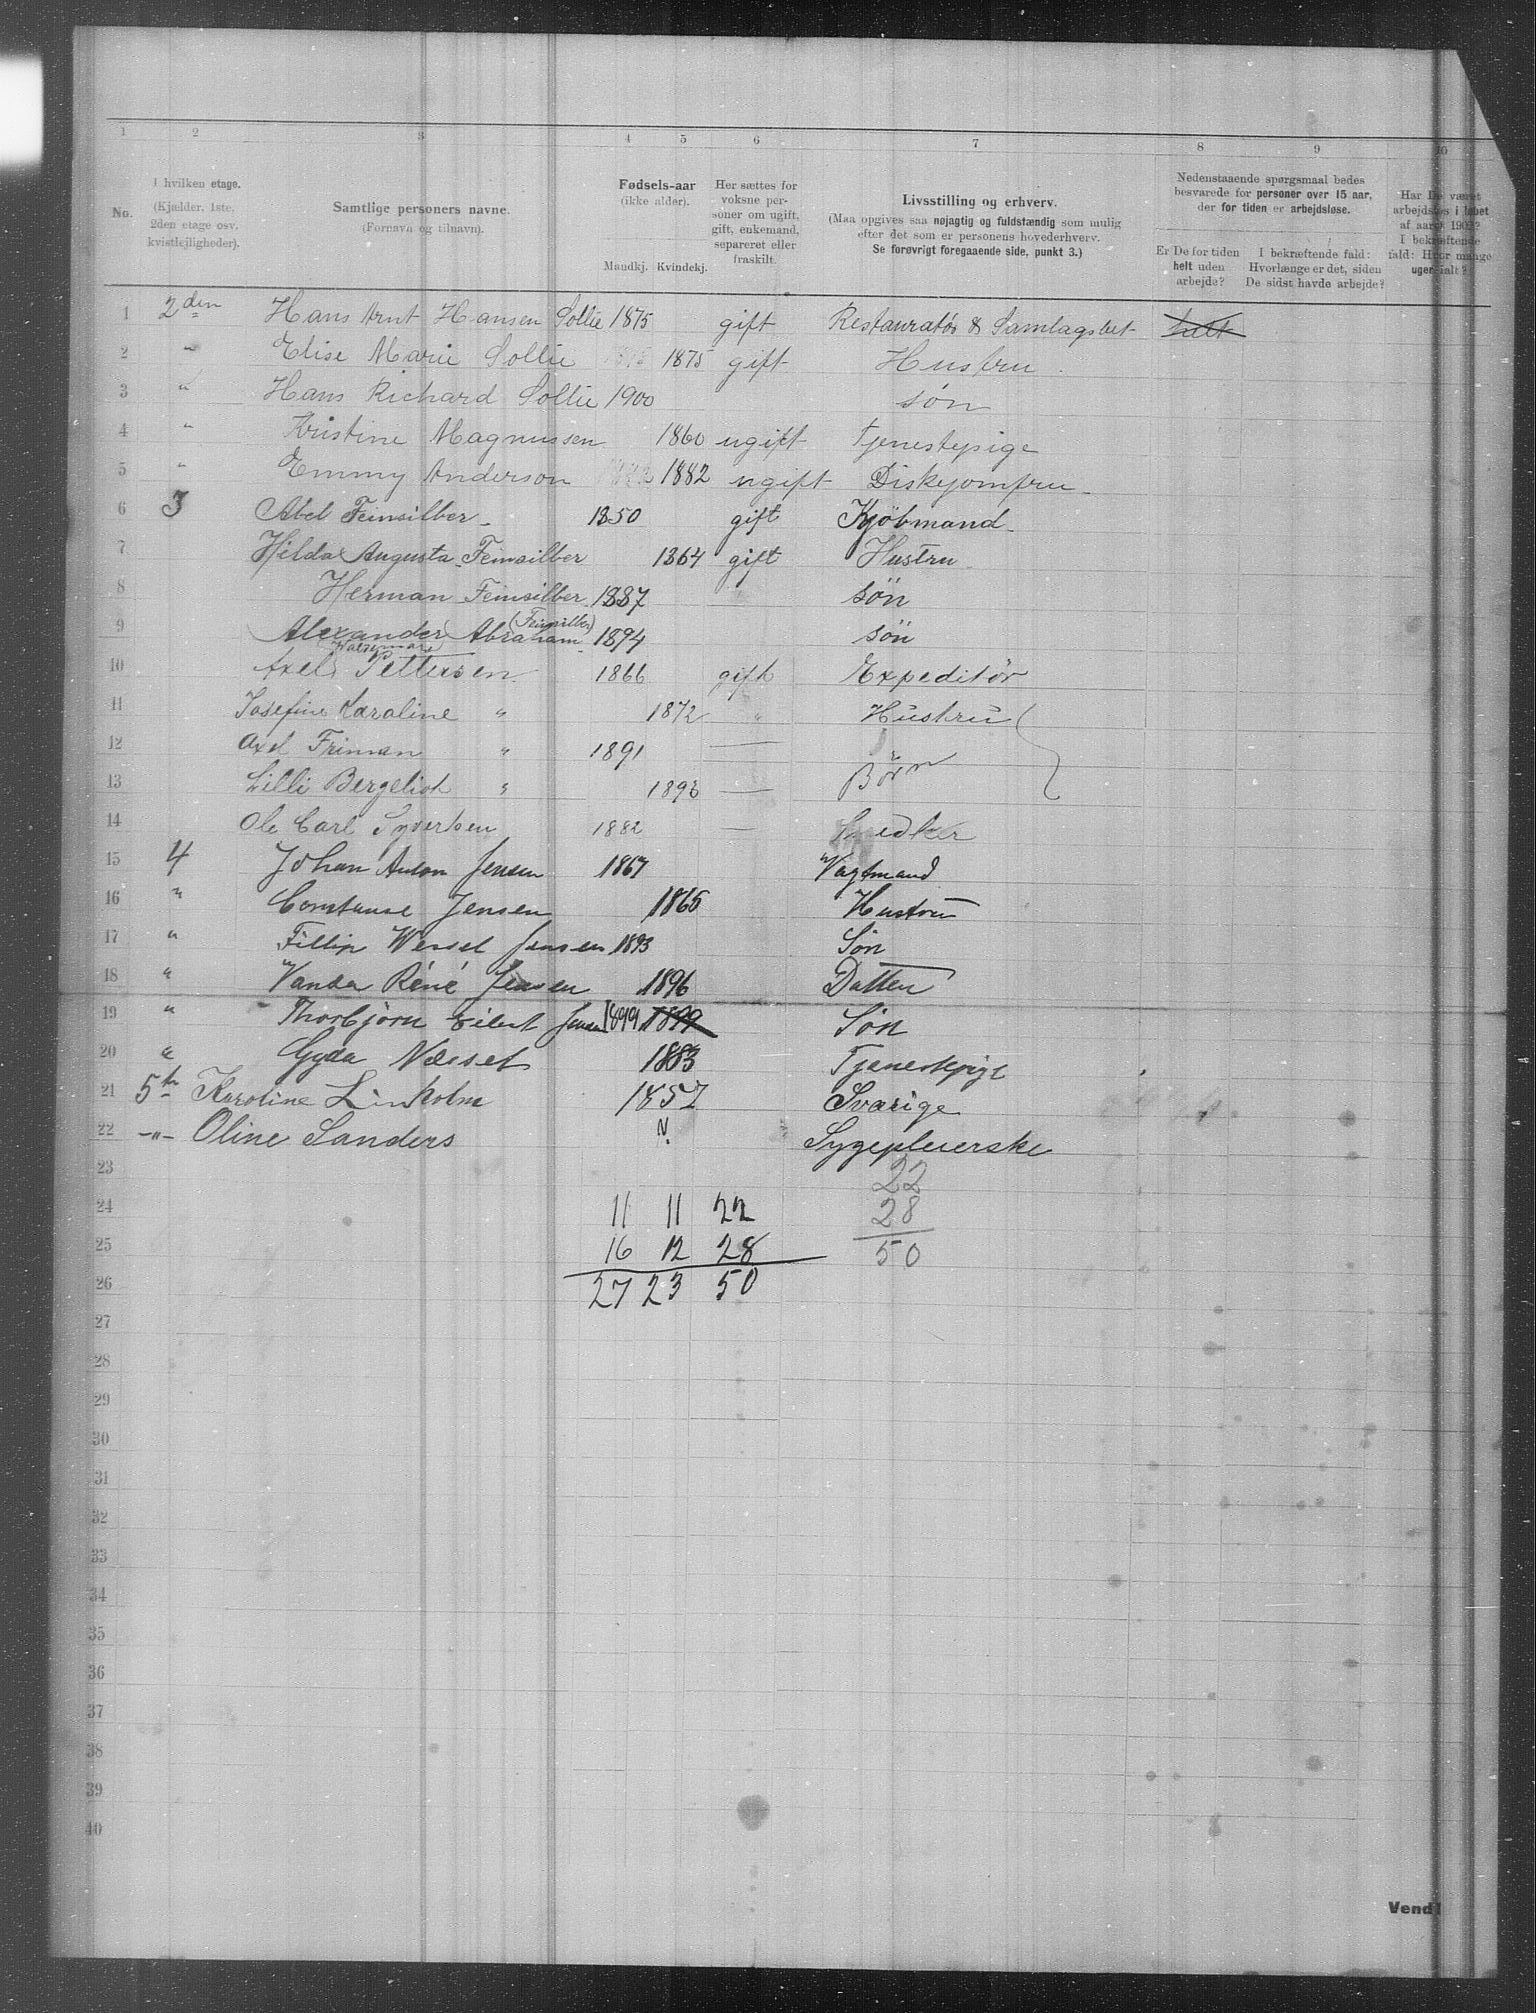 1 2 3 4 5 6 7 8 9 10
No.
I hvilken etage.
(Kjælder, 1ste,
2den etage osv.
kvistlejligheder).
Samtlige personers navne.
(Fornavn og tilnavn).
Fødsels-aar
(ikke alder).
Mandkj. Kvindekj.
Her sættes for
voksne per-
soner om ugift,
gift, enkemand,
separeret eller
fraskilt.
Livsstilling og erhverv.
(Maa opgives saa nøjagtig og fuldstændig som mulig
efter det som er personens hovederhverv.
Se forøvrigt foregaaende side, punkt 3.)
Nedenstaaende spørgsmaal bedes
besvarede for personer over 15 aar,
der for tiden er arbejdsløse.
Er De for tiden
helt uden
arbejde?
I bekræftende fald:
Hvorlænge er det, siden
De sidst havde arbejde?
Har De været
arbejdsløs i løbet
af aaret 1902?
I bekræftende
fald: Hvor mange
uger ialt?
1 2den Hans Arnt Hansen Sollie 1875 gift Restauratør & Samlagsbet helt
2 " Elise Marie Sollie 1875 gift Hustru
3 " Hans Richard Sollie 1900 søn
4 " Kristine Magnussen 1860 ugift Tjenestepige
5 " Emmy Anderson 1882 ugift Diskejomfru
6 3 Abel Feinsilber 1850 gift Kjöbmand
7 Hilda Augusta Feinsilber 1864 gift Hustru
8 Herman Feinsilber 1887 " sön
9 Alexander Abraham (Feinsilber) 1894 sön
10 Axel Valdemar Pettersen 1866 gift Expeditör
11 Josefine Karoline " 1872 " Hustru
12 Axel Friman " 1891 —
13 Lilli Bergeliot " 1893 — Börn
14 Ole Carl Syvertsen 1882 — Snedker
15 4 Johan Anton Jensen 1867 Vagtmand
16 " Constanse Jensen 1865 Hustru
17 " Fillip Wessel Jensen 1893 Søn
18 " Vanda Réné Jensen 1896 Datter
19 " Thorbjørn Eilert Jensen 1899 1899 Søn
20 " Gyda Næsset 1883 Tjenestpige
21 5te Karoline Linholm 1857 Svarige
22 -"- Oline Sanders N. Sygepleierske
23 22
24 11 11 22 28
25 16 12 28 50
26 27 23 50
27
28
29
30
31
32
33
34
35
36
37
38
39
40
Vend!